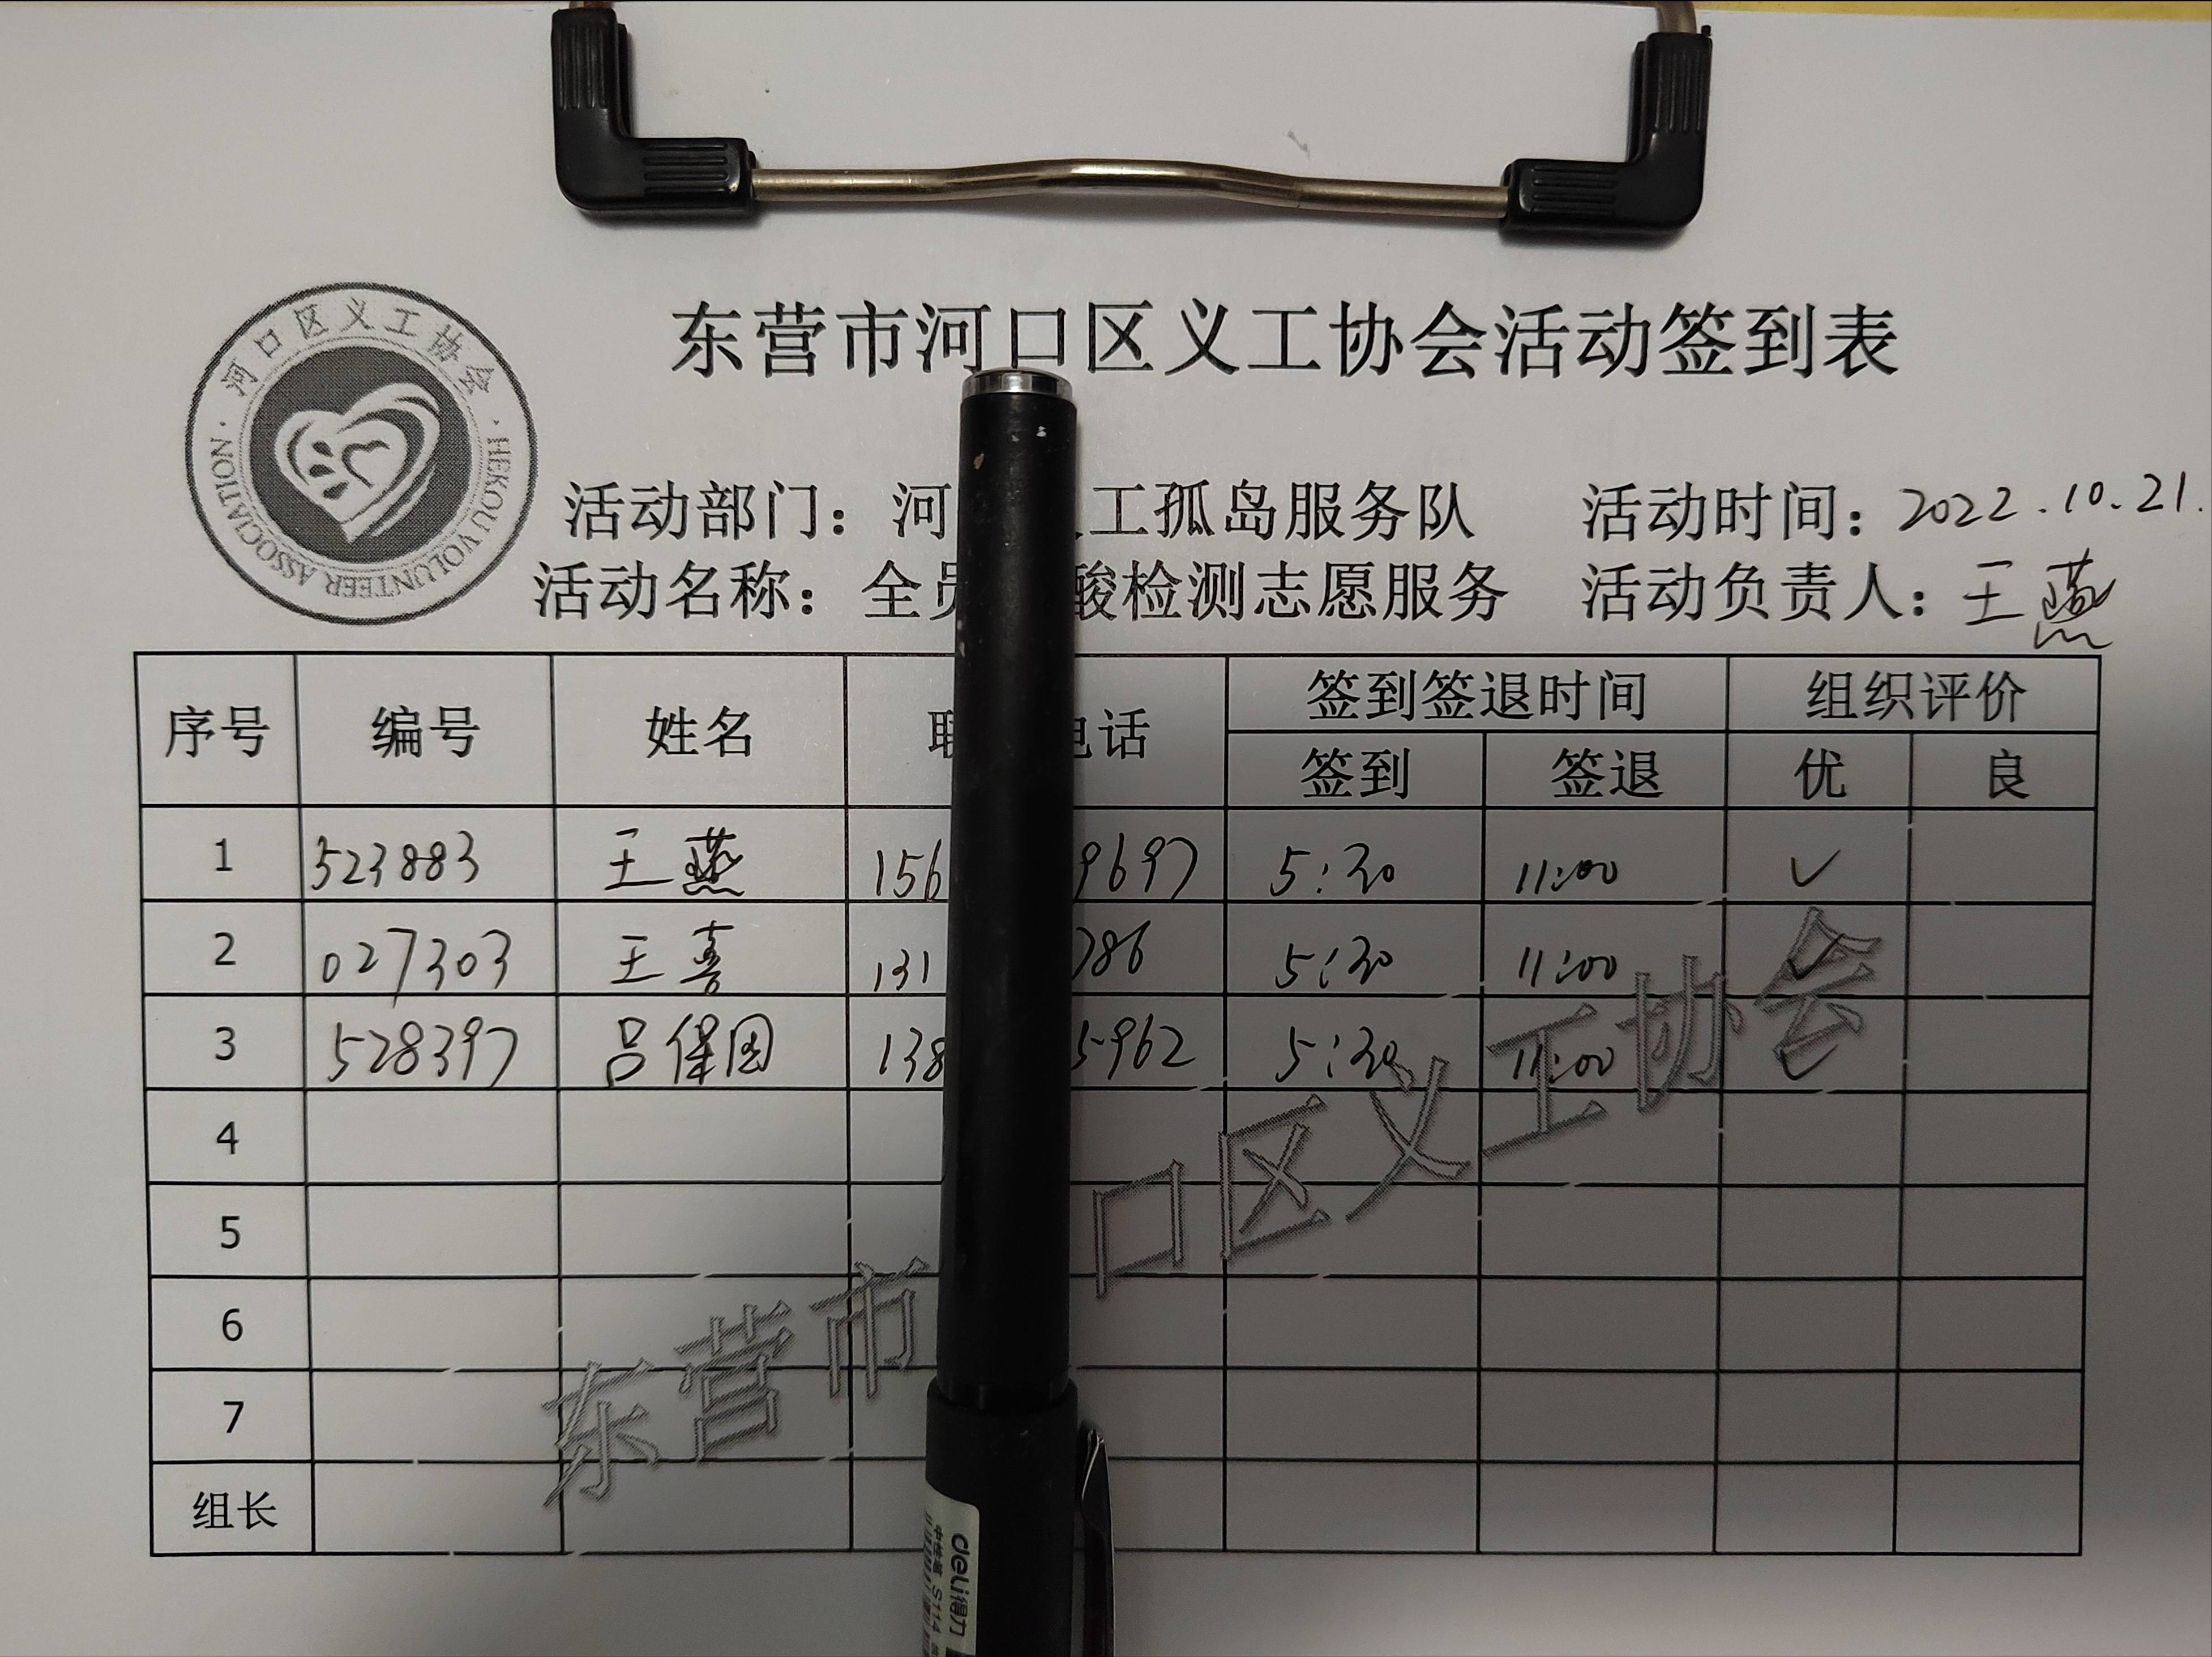 东营市河口区义工协会活动签到表
·河口区义工协会·HEKOU VOLUNTEER ASSOCIATION
活动部门：河 工孤岛服务队 活动时间：2022.10.21.
活动名称：全员 酸检测志愿服务 活动负责人：王燕
序号 编号 姓名 话 签到签退时间 组织评价
签到 签退 优 良
1 523883 王燕 156 9697 5:30 11:00 ✓
2 027303 王喜 131 786 5:30 11:00 ✓
3 528397 吕保国 138 5962 5:30 11:00 ✓
4
5
6
7
组长
东营市 口区义工协会
deli得力
S114